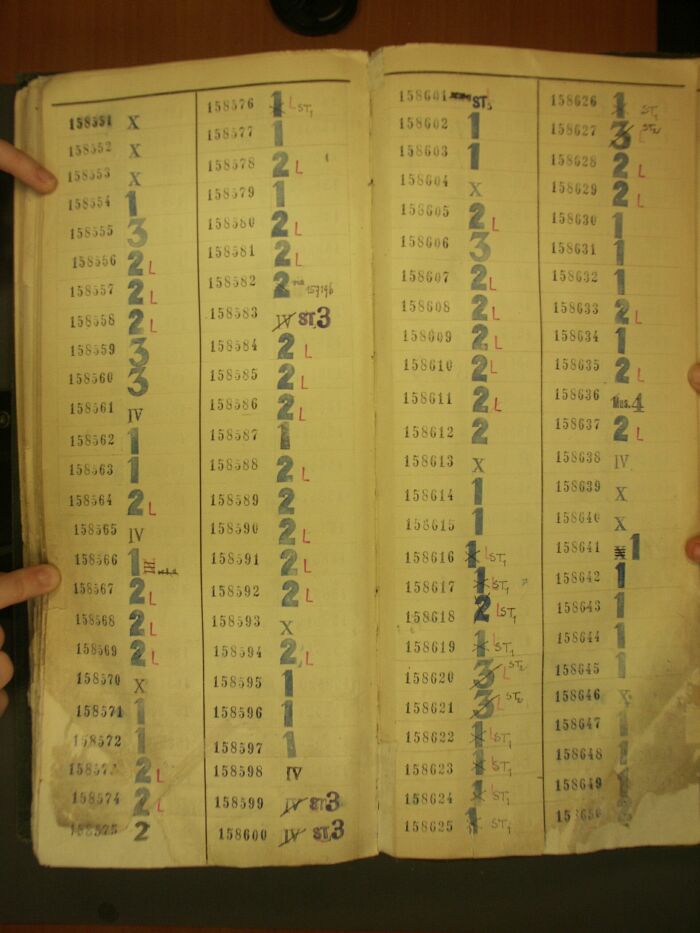 158551 X
158552 X
158553 X
158554 1
158555 3
158556 2 L
158557 2 L
158558 2 L
158559 3
158560 3
158561 IV
158562 1
158563 1
158564 2 L
158565 IV
158566 1
158567 2 L
158568 2 L
158569 2 L
158570 X
158571 1
158572 1
15857 2 L
158574 2 L
158575 2
158576 1 L ST1
158577 1
158578 2 L
158579 1
158580 2 L
158581 2 L
158582 2
158583 IV ST.3
158584 2 L
158585 2 L
158586 2 L
158587 1
158588 2 L
158589 2
158590 2 L
158591 2 L
158592 2 L
158593 X
158594 2 L
158595 1
158596 1
158597 1
158598 IV
158599 IV ST3
158600 IV ST.3
158601 ST3
158602 1
158603 1
158604 X
158605 2 L
158606 3
158607 2 L
158608 2 L
158609 2 L
158610 2 L
158611 2 L
158612 2
158613 X
158614 1
158615 1
158616 1 L ST1
158617 1 L ST1
158618 2 L ST1
158619 1 L ST1
158620 3 L ST2
158621 3 L ST2
158622 1 L ST1
158623 1 L ST1
158624 1 L ST1
158625 1 ST1
158626 1 ST1
158627 3 L ST2
158628 2 L
158629 2 L
158630 1
158631 1
158632 1
158633 2 L
158634 1
158635 2 L
158636 Mus. 4
158637 2 L
158638 IV
158639 X
158640 X
158641 1
158642 1
158643 1
158644 1
158645 1
158646 X
158647 1
158648 1
158649 1
158650 2